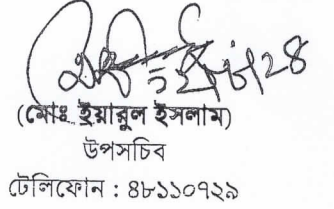 (মোঃ ইয়ারুল ইসলাম)
উপসচিব
টেলিফোন : ৪৮১১০৭২৯